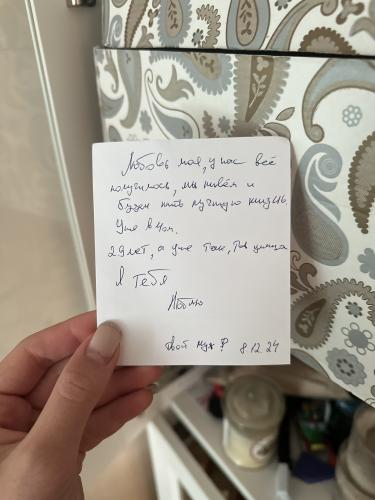 Любовь моя, у нас всё
получилось, мы живём и
будем жить лучшую жизнь
Уже в
29 лет, а уже так, Ты умница
Я Тебя
Люблю
твой муж 8.12.24